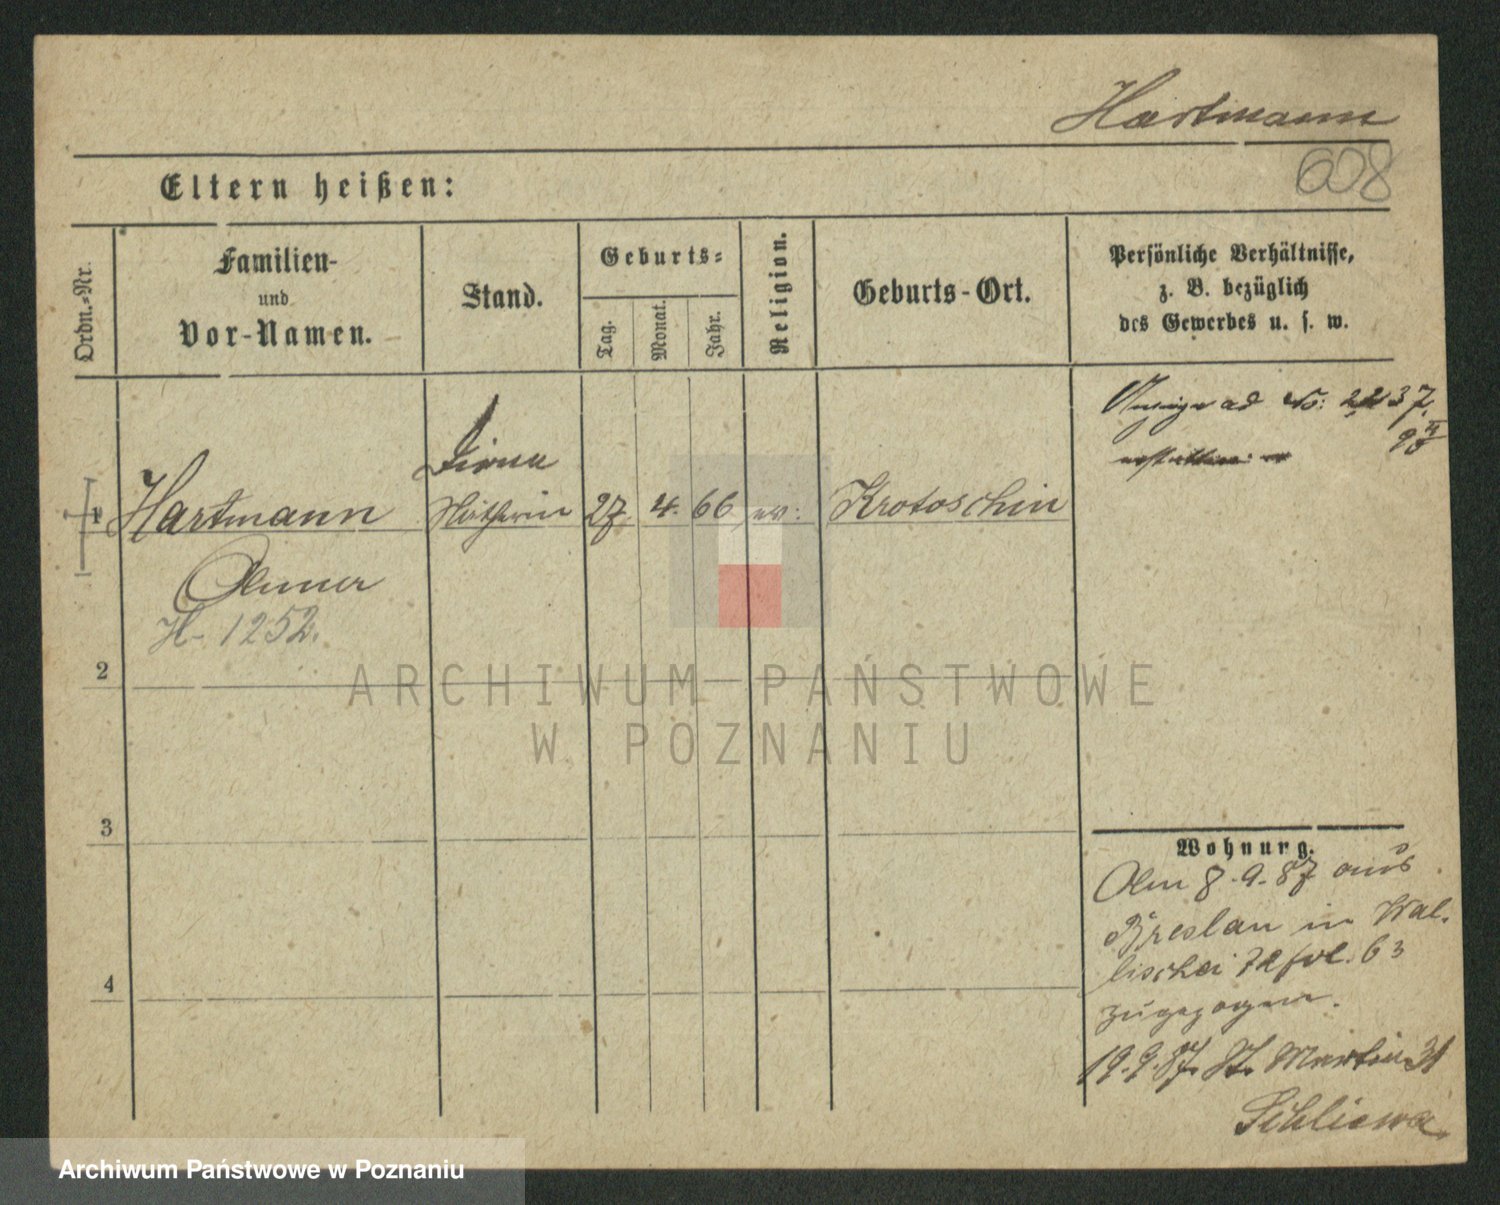 Hartmann
608
Eltern heißen:
Ordn.-Nr.
Familien-
und
Vor-Namen.
Stand.
Geburts-
Tag.
Monat.
Jahr.
Religion.
Geburts-Ort.
Persönliche Verhältnisse,
z. B. bezüglich
des Gewerbes u. s. w.
ad No: 2237
1 Hartmann
27. 4. 66 ev: Krotoschin
H- 1252.
2
3
4
Wohnung.
Am 8.9.87 aus
Breslau in Wal-
lischei 72 fol. 63
zugezogen.
19.9.87. St. Martin 31
ARCHIWUM PAŃSTWOWE
W POZNANIU
Archiwum Państwowe w Poznaniu